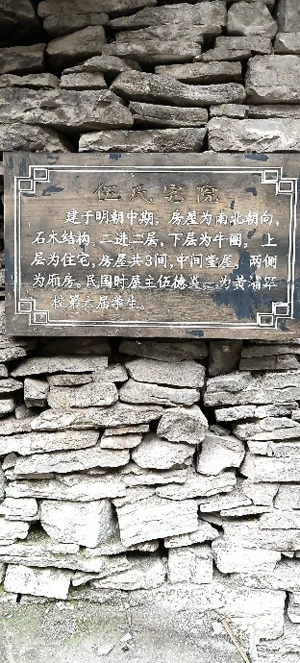 伍氏宅院
建于明朝中期，房屋为南北朝向，
石木结构，二进二层，下层为牛圈，上
层为住宅，房屋共3间，中间堂屋，两侧
为厢房。民国时屋主伍德 ，为黄埔军
校第六届学生。